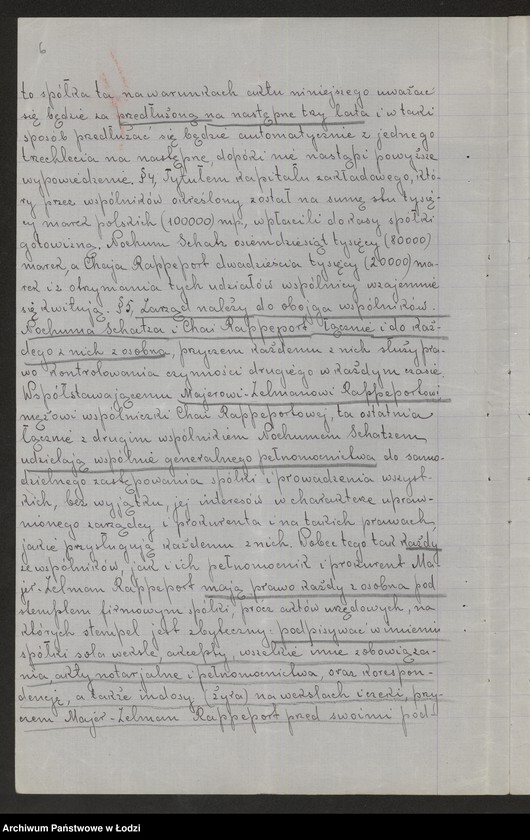 6
to spółka ta na warunkach aktu niniejszego uważać
się będzie za przedłużoną na następne trzy lata i w taki
sposób przedłużać się będzie automatycznie z jednego
trzechlecia na następne, dopóki nie nastąpi powyższe
wypowiedzenie. §4, Tytułem kapitału zakładowego, któ-
ry przez wspólników określony został na sumę stu tysię-
cy marek polskich (100000) mp., wpłacili do kasy spółki
gotowizną. Nochum Schatz osiemdziesiąt tysięcy (80000)
marek, a Chaja Rappeport dwadzieścia tysięcy (20000) ma-
rek i z otrzymania tych udziałów wspólnicy wzajemnie
się kwitują. §5, Zarząd należy do obojga wspólników.
Nochuma Schatza i Chai Rappeport łącznie i do każ-
dego z nich z osobna, przyczem każdemu z nich służy pra-
wo kontrolowania czynności drugiego w każdym czasie.
Współstawającemu Majerowi-Zelmanowi Rappeportowi
mężowi wspólniczki Chai Rappeportowej, ta ostatnia
łącznie z drugim wspólnikiem Nochumem Schatzem,
udzielają wspólnie generalnego pełnomocnictwa do samo-
dzielnego zastępowania spółki i prowadzenia wszyst-
kich, bez wyjątku, jej interesów w charakterze upraw-
nionego zarządcy i prokurenta i na takich prawach,
jakie przysługują każdemu z nich. Wobec tego tak każdy
ze wspólników, jak i ich pełnomocnik i prokurent Ma-
jer-Zelman Rappeport mają prawo każdy z osobna pod
stemplem firmowym spółki, prócz aktów urzędowych, na
których stempel jest zbyteczny, podpisywać w imieniu
spółki sola weksle, akcepty, wszelkie inne zobowiąza-
nia, akty notarjalne i pełnomocnictwa, oraz korespon-
dencję, a także indosy (żyra) na wekslach i czeki, przy-
czem Majer-Zelman Rappeport przed swoimi pod-
Archiwum Państwowe w Łodzi